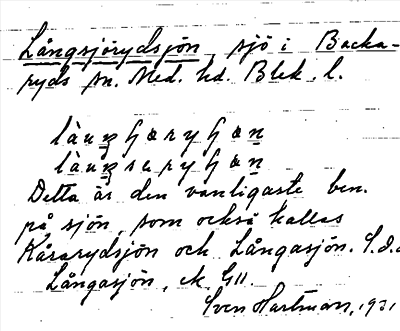 Långsjörydsjön, sjö i Backa-
ryds sn. Med. hd. Blek. l.
Detta är den vanligaste ben.
på sjön, som också kallas
Kåsarydsjön och Långasjön. S.d.
Långasjön, ek. G11
Sven Hartman, 1931